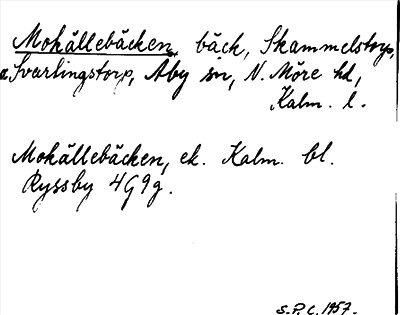 Mohällebäcken, bäck, Skammelstorp,
o. Svartingstorp, Åby sn, N. Möre hd,
Kalm. l.
Mohällebäcken, ek. Kalm. bl.
Ryssby 4G9g.
S.P.C. 1957.